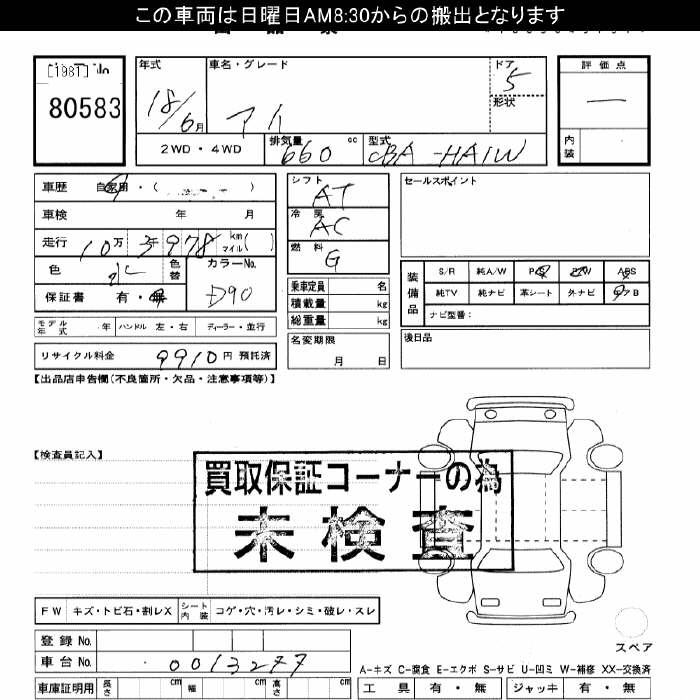 この車両は日曜日AM8:30からの搬出となります
[1981] No
80583
年式
18/6月
車名・グレード
アイ
ドア
5
形状
2WD・4WD
排気量 660 cc
型式 CBA-HA1W
評価点
―
内装
車歴 自家用・( )
車検 年 月
走行 10万 3千978 km マイル( )
色
色替
カラーNo. D90
保証書 有・無
モデル年式 年 ハンドル 左・右 ディーラー・並行
リサイクル料金 9910 円 預託済
シフト AT
冷房 AC
燃料 G
乗車定員 名
積載量 kg
総重量 kg
名変期限
月 日
セールスポイント
装備品
S/R 純A/W P/S P/W ABS
純TV 純ナビ 革シート 外ナビ エアB
ナビ型番:
後日品
【出品店申告欄(不良箇所・欠品・注意事項等)】
【検査員記入】
買取保証コーナーの為
未検査
FW キズ・トビ石・割レX シート内装 コゲ・穴・汚レ・シミ・破レ・スレ
登録 No.
車台 No. 0013277
スペア
A-キズ C-腐食 E-エクボ S-サビ U-凹ミ W-補修 XX-交換済
車庫証明用 長さ cm 幅 cm 高さ cm
工具 有・無 ジャッキ 有・無